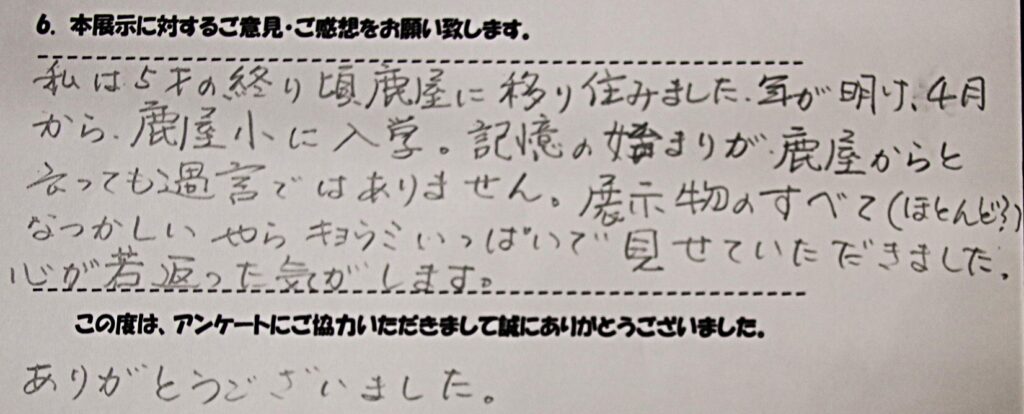 6. 本展示に対するご意見・ご感想をお願い致します。
私は5才の終り頃鹿屋に移り住みました、年が明け、4月
から、鹿屋小に入学。記憶の始まりが鹿屋からと
言っても過言ではありません。展示物のすべて(ほとんど?)
なつかしいやらキョウミいっぱいで見せていただきました。
心が若返った気がします。
この度は、アンケートにご協力いただきまして誠にありがとうございました。
ありがとうございました。